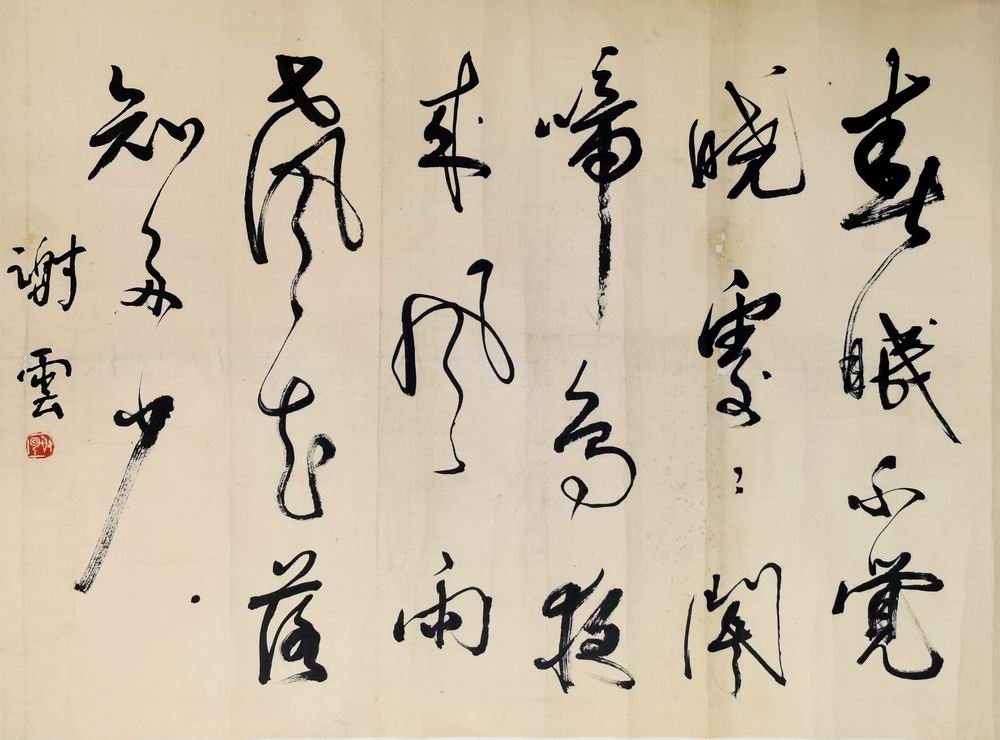 春眠不覺
曉處々聞
啼鳥夜
來風雨
聲花落
知多少
謝雲